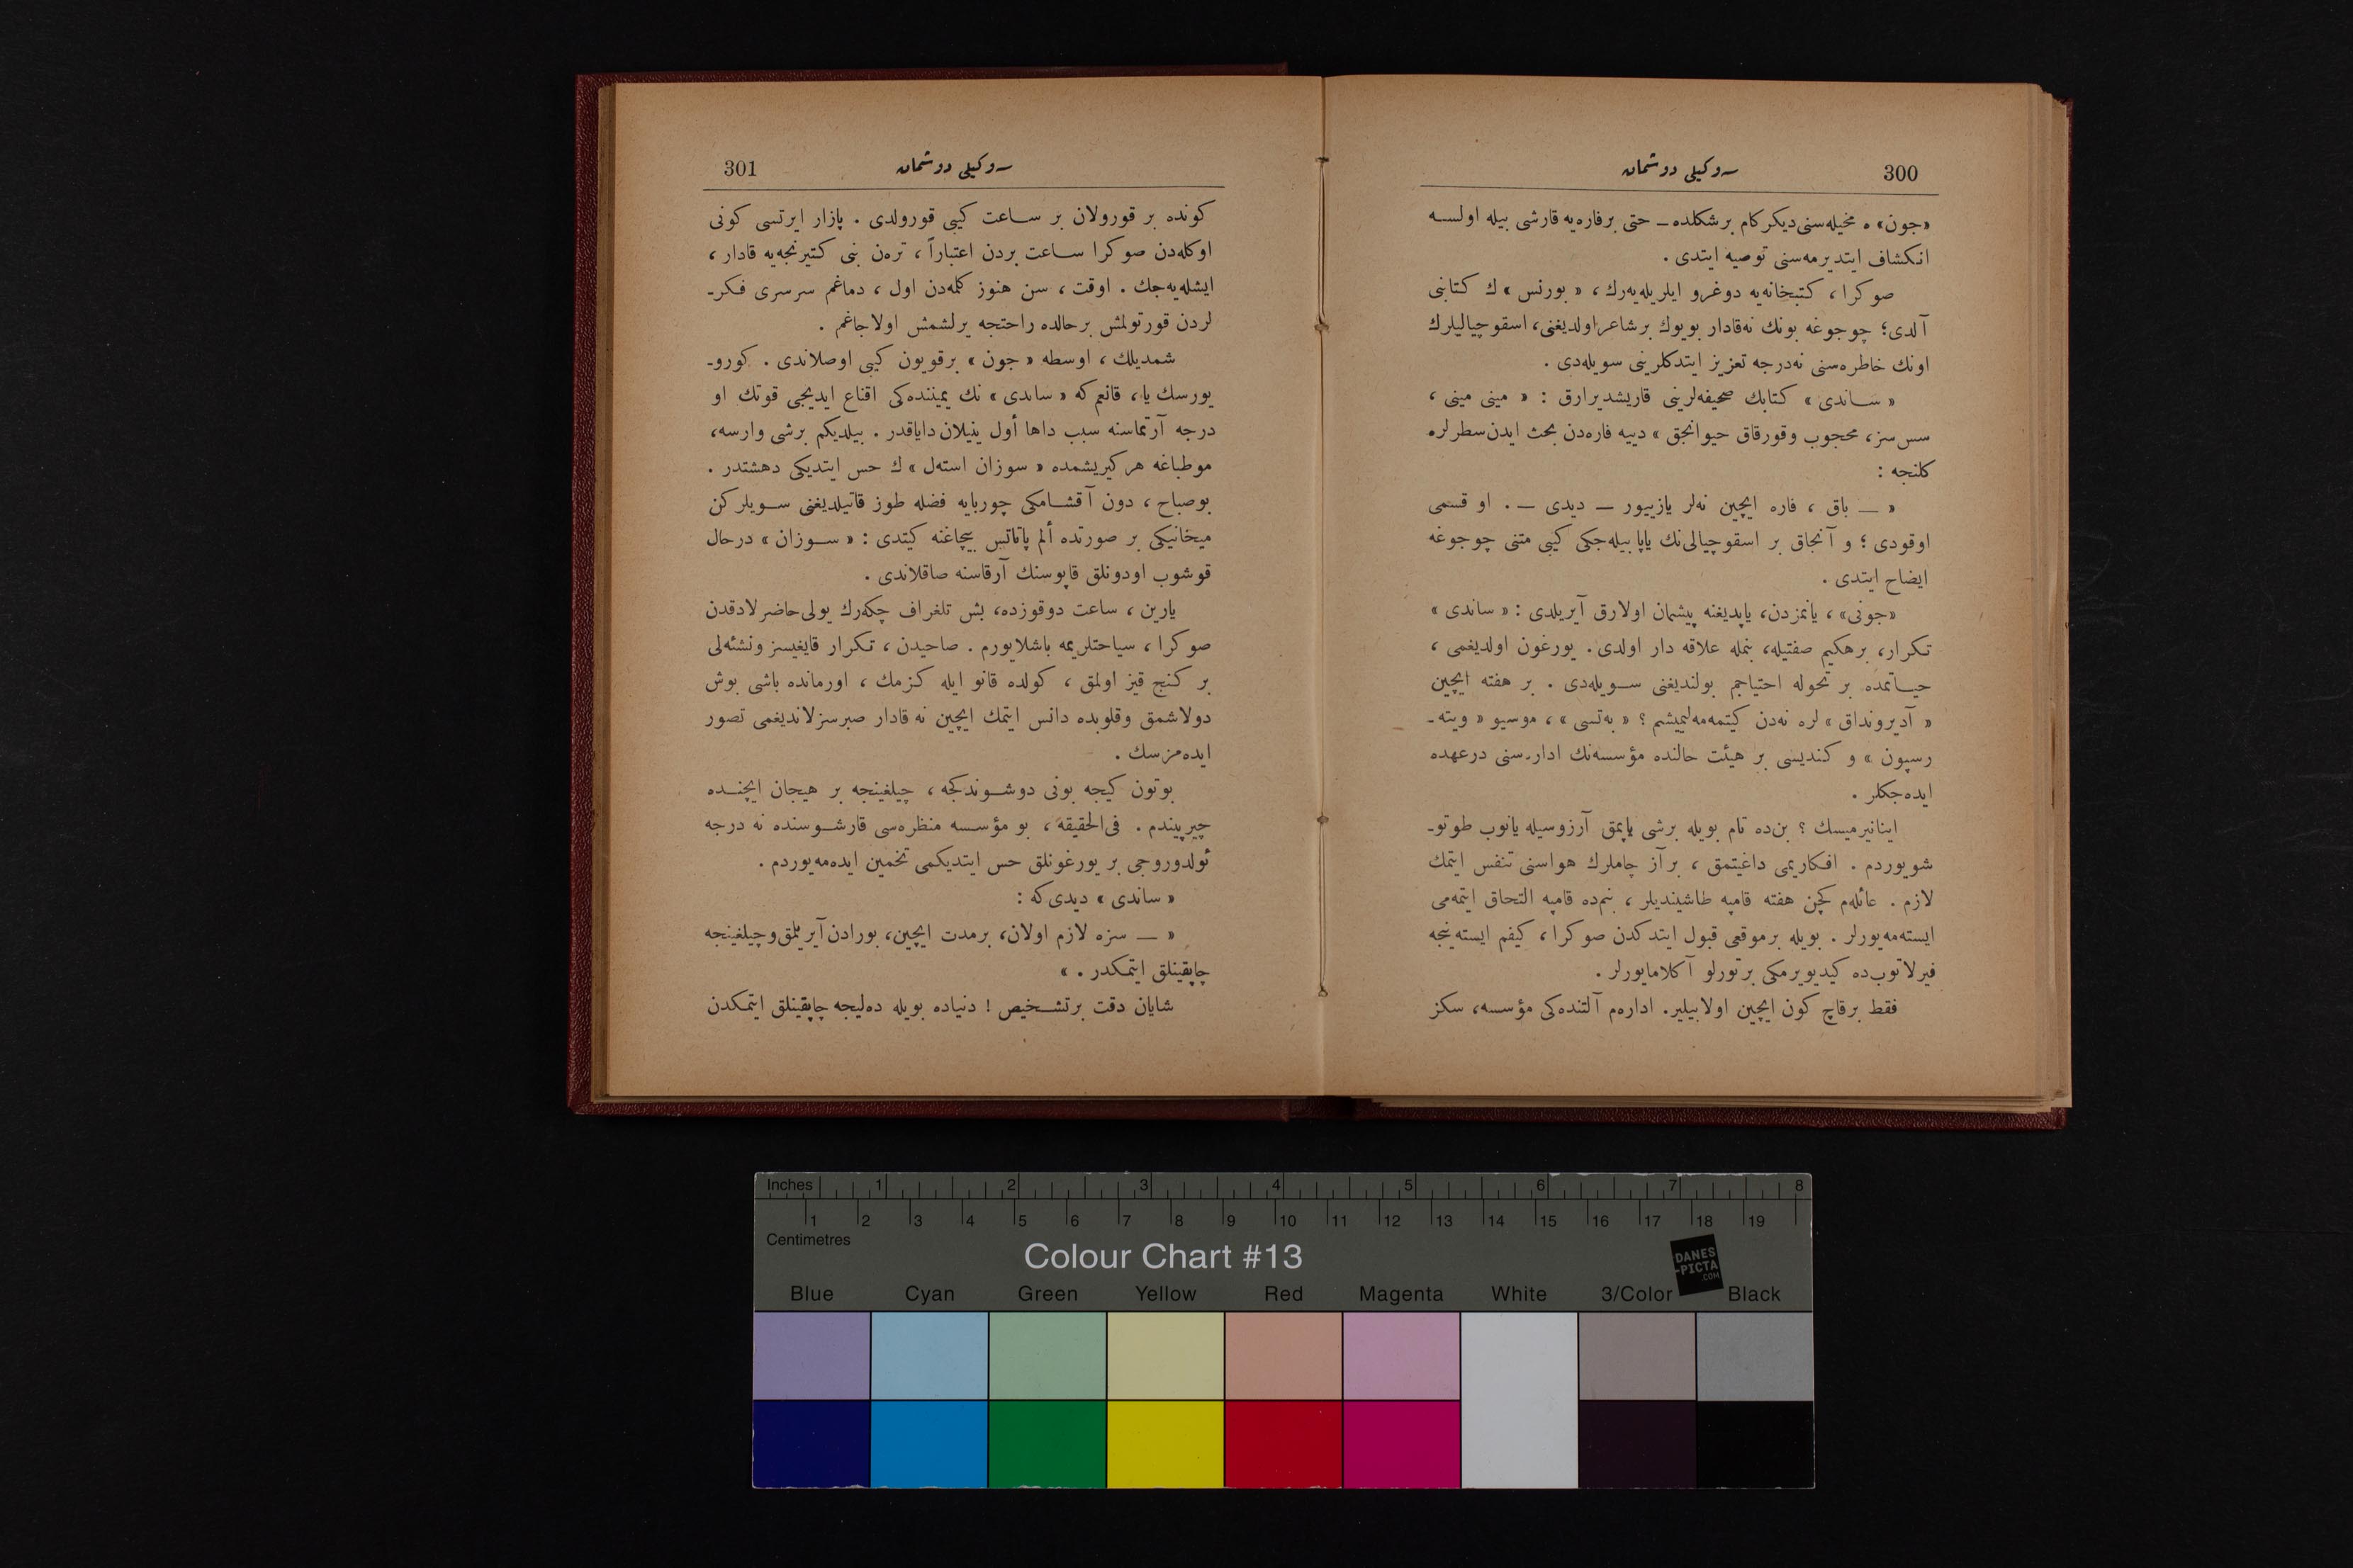 300
سوكيلى دوشمان
«جون» ه مخيله‌سنى ديكر كام بر شكلده ــ حتى بر فاره‌يه قارشى بيله اولسه
انكشاف ايتديرمه‌سنى توصيه ايتدى .
صوكرا ، كتبخانه‌يه دوغرو ايلريله‌يه‌رك ، « بورنس » ك كتابنى
آلدى ؛ چوجوغه بونك نه‌قادار بويوك بر شاعر اولديغنى ، اسقوچياليلرك
اونك خاطره‌سنى نه‌درجه تعزيز ايتدكلرينى سويله‌دى .
« ساندى » كتابك صحيفه‌لرينى قاريشديرارق : « مينى مينى ،
سس سز ، محجوب وقورقاق حيوانجق » دييه فاره‌دن بحث ايدن سطرلره
كلنجه :
« ــ باق ، فاره ايچين نه‌لر يازييور ــ ديدى ــ . او قسمى
اوقودى ؛ و آنجاق بر اسقوچيالى‌نك ياپابيله‌جكى كيبى متنى چوجوغه
ايضاح ايتدى .
«جونى» ، يانمزدن ، ياپديغنه پيشمان اولارق آيريلدى : « ساندى »
تكرار ، بر هكيم صفتيله ، بنمله علاقه دار اولدى . يورغون اولديغمى ،
حياتمده بر تحوله احتياجم بولنديغنى سويله‌دى . بر هفته ايچين
« آديرونداق » لره نه‌دن كيتمه‌مه‌ليميشم ؟ « به‌تسى » ، موسيو « ويته‌ـ
رسپون » و كنديسى بر هيئت حالنده مؤسسه‌نك اداره‌سنى درعهده
ايده‌جكلر .
اينانيرميسك ؟ بن‌ده تام بويله برشى ياپمق آرزوسيله يانوب طوتوـ
شويوردم . افكاريمى داغيتمق ، بر آز چاملرك هواسنى تنفس ايتمك
لازم . عائله‌م كچن هفته قامپه طاشينديلر ، بنم‌ده قامپه التحاق ايتمه‌مى
ايسته‌مه‌يورلر . بويله بر موقعى قبول ايتدكدن صوكرا ، كيفم ايسته‌ينجه
فيرلاتوب‌ده كيديويرمكى بر تورلو آكلامايورلر .
فقط بر قاچ كون ايچين اولابيلير . اداره‌م آلتنده‌كى مؤسسه ، سكز
سوكيلى دوشمان
301
كونده بر قورولان بر ساعت كيبى قورولدى . پازار ايرتسى كونى
اوكله‌دن صوكرا ساعت بردن اعتباراً ، تره‌ن بنى كتيرنجه‌يه قادار ،
ايشله‌يه‌جك . اوقت ، سن هنوز كلمه‌دن اول ، دماغم سرسرى فكرـ
لردن قورتولمش بر حالده راحتجه يرلشمش اولاجاغم .
شمديلك ، اوسطه « جون » بر قويون كيبى اوصلاندى . كوروـ
يورسك يا ، قانعم كه « ساندى » نك يميننده‌كى اقناع ايديجى قوتك او
درجه آرتماسنه سبب داها أول ينيلان داياقدر . بيلديكم برشى وارسه ،
موطباغه هر كيريشمده « سوزان استه‌ل » ك حس ايتديكى دهشتدر .
بوصباح ، دون آقشامكى چوربايه فضله طوز قاتيلديغنى سويلركن
ميخانيكى بر صورتده ألم پاتاتس بيچاغنه كيتدى : « سوزان » درحال
قوشوب اودونلق قاپوسنك آرقاسنه صاقلاندى .
يارين ، ساعت دوقوزده ، بش تلغراف چكه‌رك يولى حاضرلادقدن
صوكرا ، سياحتلريمه باشلايورم . صاحيدن ، تكرار قايغيسز ونشئه‌لى
بر كنج قيز اولمق ، كولده قانو ايله كزمك ، اورمانده باشى بوش
دولاشمق وقلوبده دانس ايتمك ايچين نه قادار صبرسزلانديغمى تصور
ايده‌مزسك .
بوتون كيجه بونى دوشوندكجه ، چيلغينجه بر هيجان ايچنده
چيرپيندم . فى‌الحقيقه ، بو مؤسسه منظره‌سى قارشوسنده نه درجه
ئولدوروجى بر يورغونلق حس ايتديكمى تخمين ايده‌مه‌يوردم .
« ساندى » ديدى كه :
« ــ سزه لازم اولان ، بر مدت ايچين ، بورادن آيريلمق و چيلغينجه
چاپقينلق ايتمكدر . »
شايان دقت بر تشخيص ! دنياده بويله ده‌ليجه چاپقينلق ايتمكدن
Inches 1 2 3 4 5 6 7 8
1 2 3 4 5 6 7 8 9 10 11 12 13 14 15 16 17 18 19
Centimetres
Colour Chart #13
DANES
-PICTA
.COM
Blue Cyan Green Yellow Red Magenta White 3/Color Black